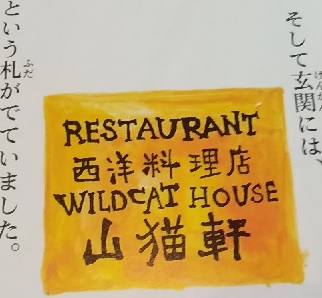 そして玄関には、
RESTAURANT
西洋料理店
WILDCAT HOUSE
山猫軒
という札がでていました。